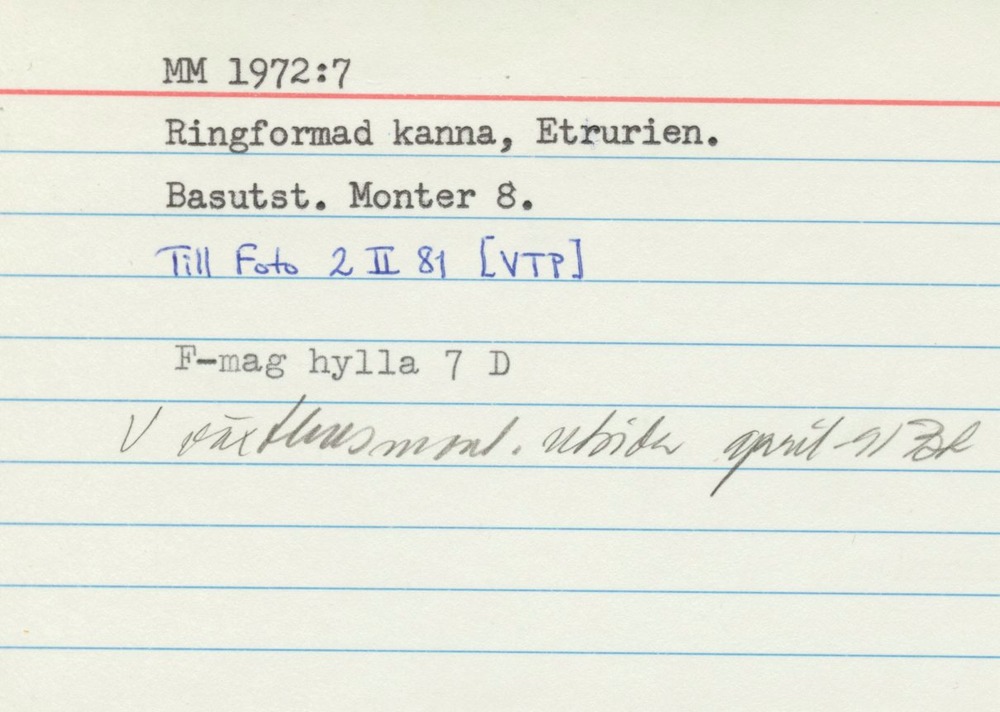 MM 1972:7
Ringformad kanna, Etrurien.
Basutst. Monter 8.
Till Foto 2 II 81 [VTP]
F-mag hylla 7 D
V växthusmont. april -91